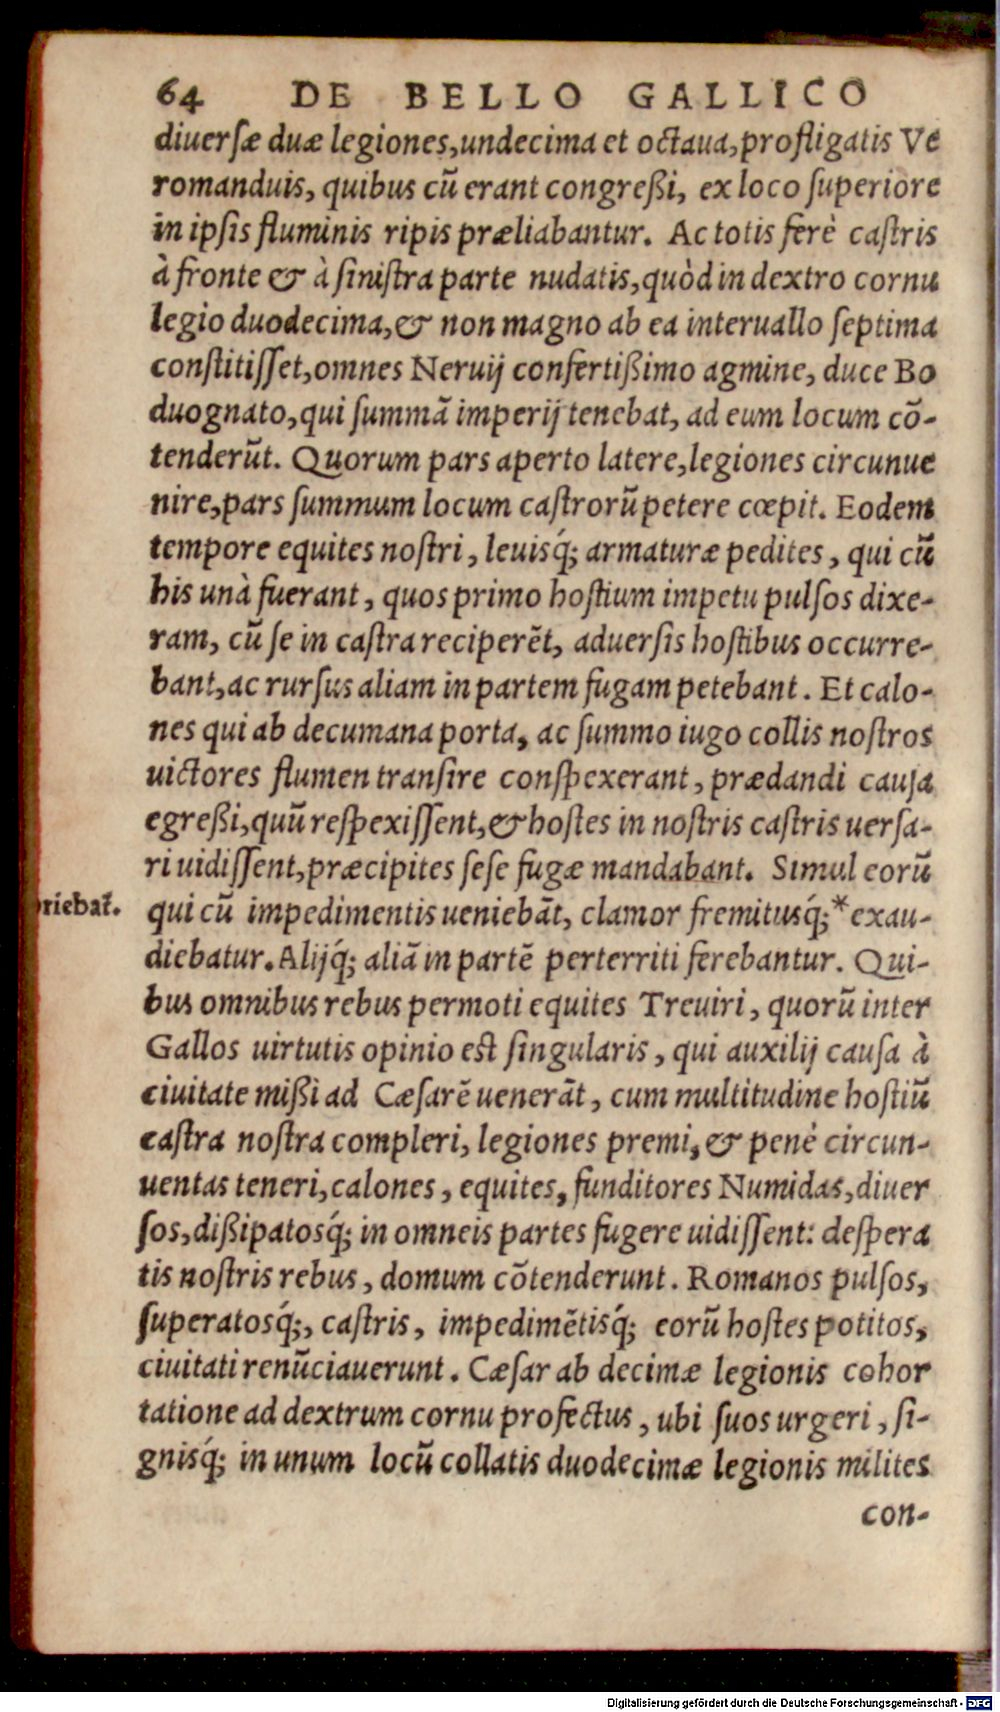 64 DE BELLO GALLICO
diuerſæ duæ legiones,undecima et octaua,profligatis Ve
romanduis, quibus cũ erant congreßi, ex loco ſuperiore
in ipſis fluminis ripis præliabantur. Ac totis ferè caſtris
à fronte & à ſiniſtra parte nudatis,quòd in dextro cornu
legio duodecima,& non magno ab ea interuallo ſeptima
conſtitiſſet,omnes Neruij confertißimo agmine, duce Bo
duognato,qui ſummã imperij tenebat, ad eum locum cõ-
tenderũt. Quorum pars aperto latere,legiones circunue
nire,pars ſummum locum caſtrorũ petere cœpit. Eodem
tempore equites noſtri, leuisq́; armaturæ pedites, qui cũ
his unà fuerant, quos primo hoſtium impetu pulſos dixe-
ram, cũ ſe in caſtra reciperẽt, aduerſis hoſtibus occurre-
bant,ac rurſus aliam in partem fugam petebant. Et calo-
nes qui ab decumana porta, ac ſummo iugo collis noſtros
uictores flumen tranſire conſpexerant, prædandi cauſa
egreßi,quũ reſpexiſſent,& hoſtes in noſtris caſtris uerſa-
ri uidiſſent,præcipites ſeſe fugæ mandabant. Simul eorũ
qui cũ impedimentis ueniebãt, clamor fremitusq́;*exau-
riebat̃.
diebatur. Alijq́; aliã in partẽ perterriti ferebantur. Qui-
bus omnibus rebus permoti equites Treuiri, quorũ inter
Gallos uirtutis opinio eſt ſingularis, qui auxilij cauſa à
ciuitate mißi ad Cæſarẽ uenerãt, cum multitudine hoſtiũ
caſtra noſtra compleri, legiones premi, & penè circun-
uentas teneri,calones, equites, funditores Numidas,diuer
ſos,dißipatosq́; in omneis partes fugere uidiſſent: deſpera
tis noſtris rebus, domum cõtenderunt. Romanos pulſos,
ſuperatosq́;, caſtris, impedimẽtisq́; eorũ hoſtes potitos,
ciuitati renũciauerunt. Cæſar ab decimæ legionis cohor
tatione ad dextrum cornu profectus, ubi ſuos urgeri, ſi-
gnisq́; in unum locũ collatis duodecimæ legionis milites
con-
Digitalisierung gefördert durch die Deutsche Forschungsgemeinschaft - DFG